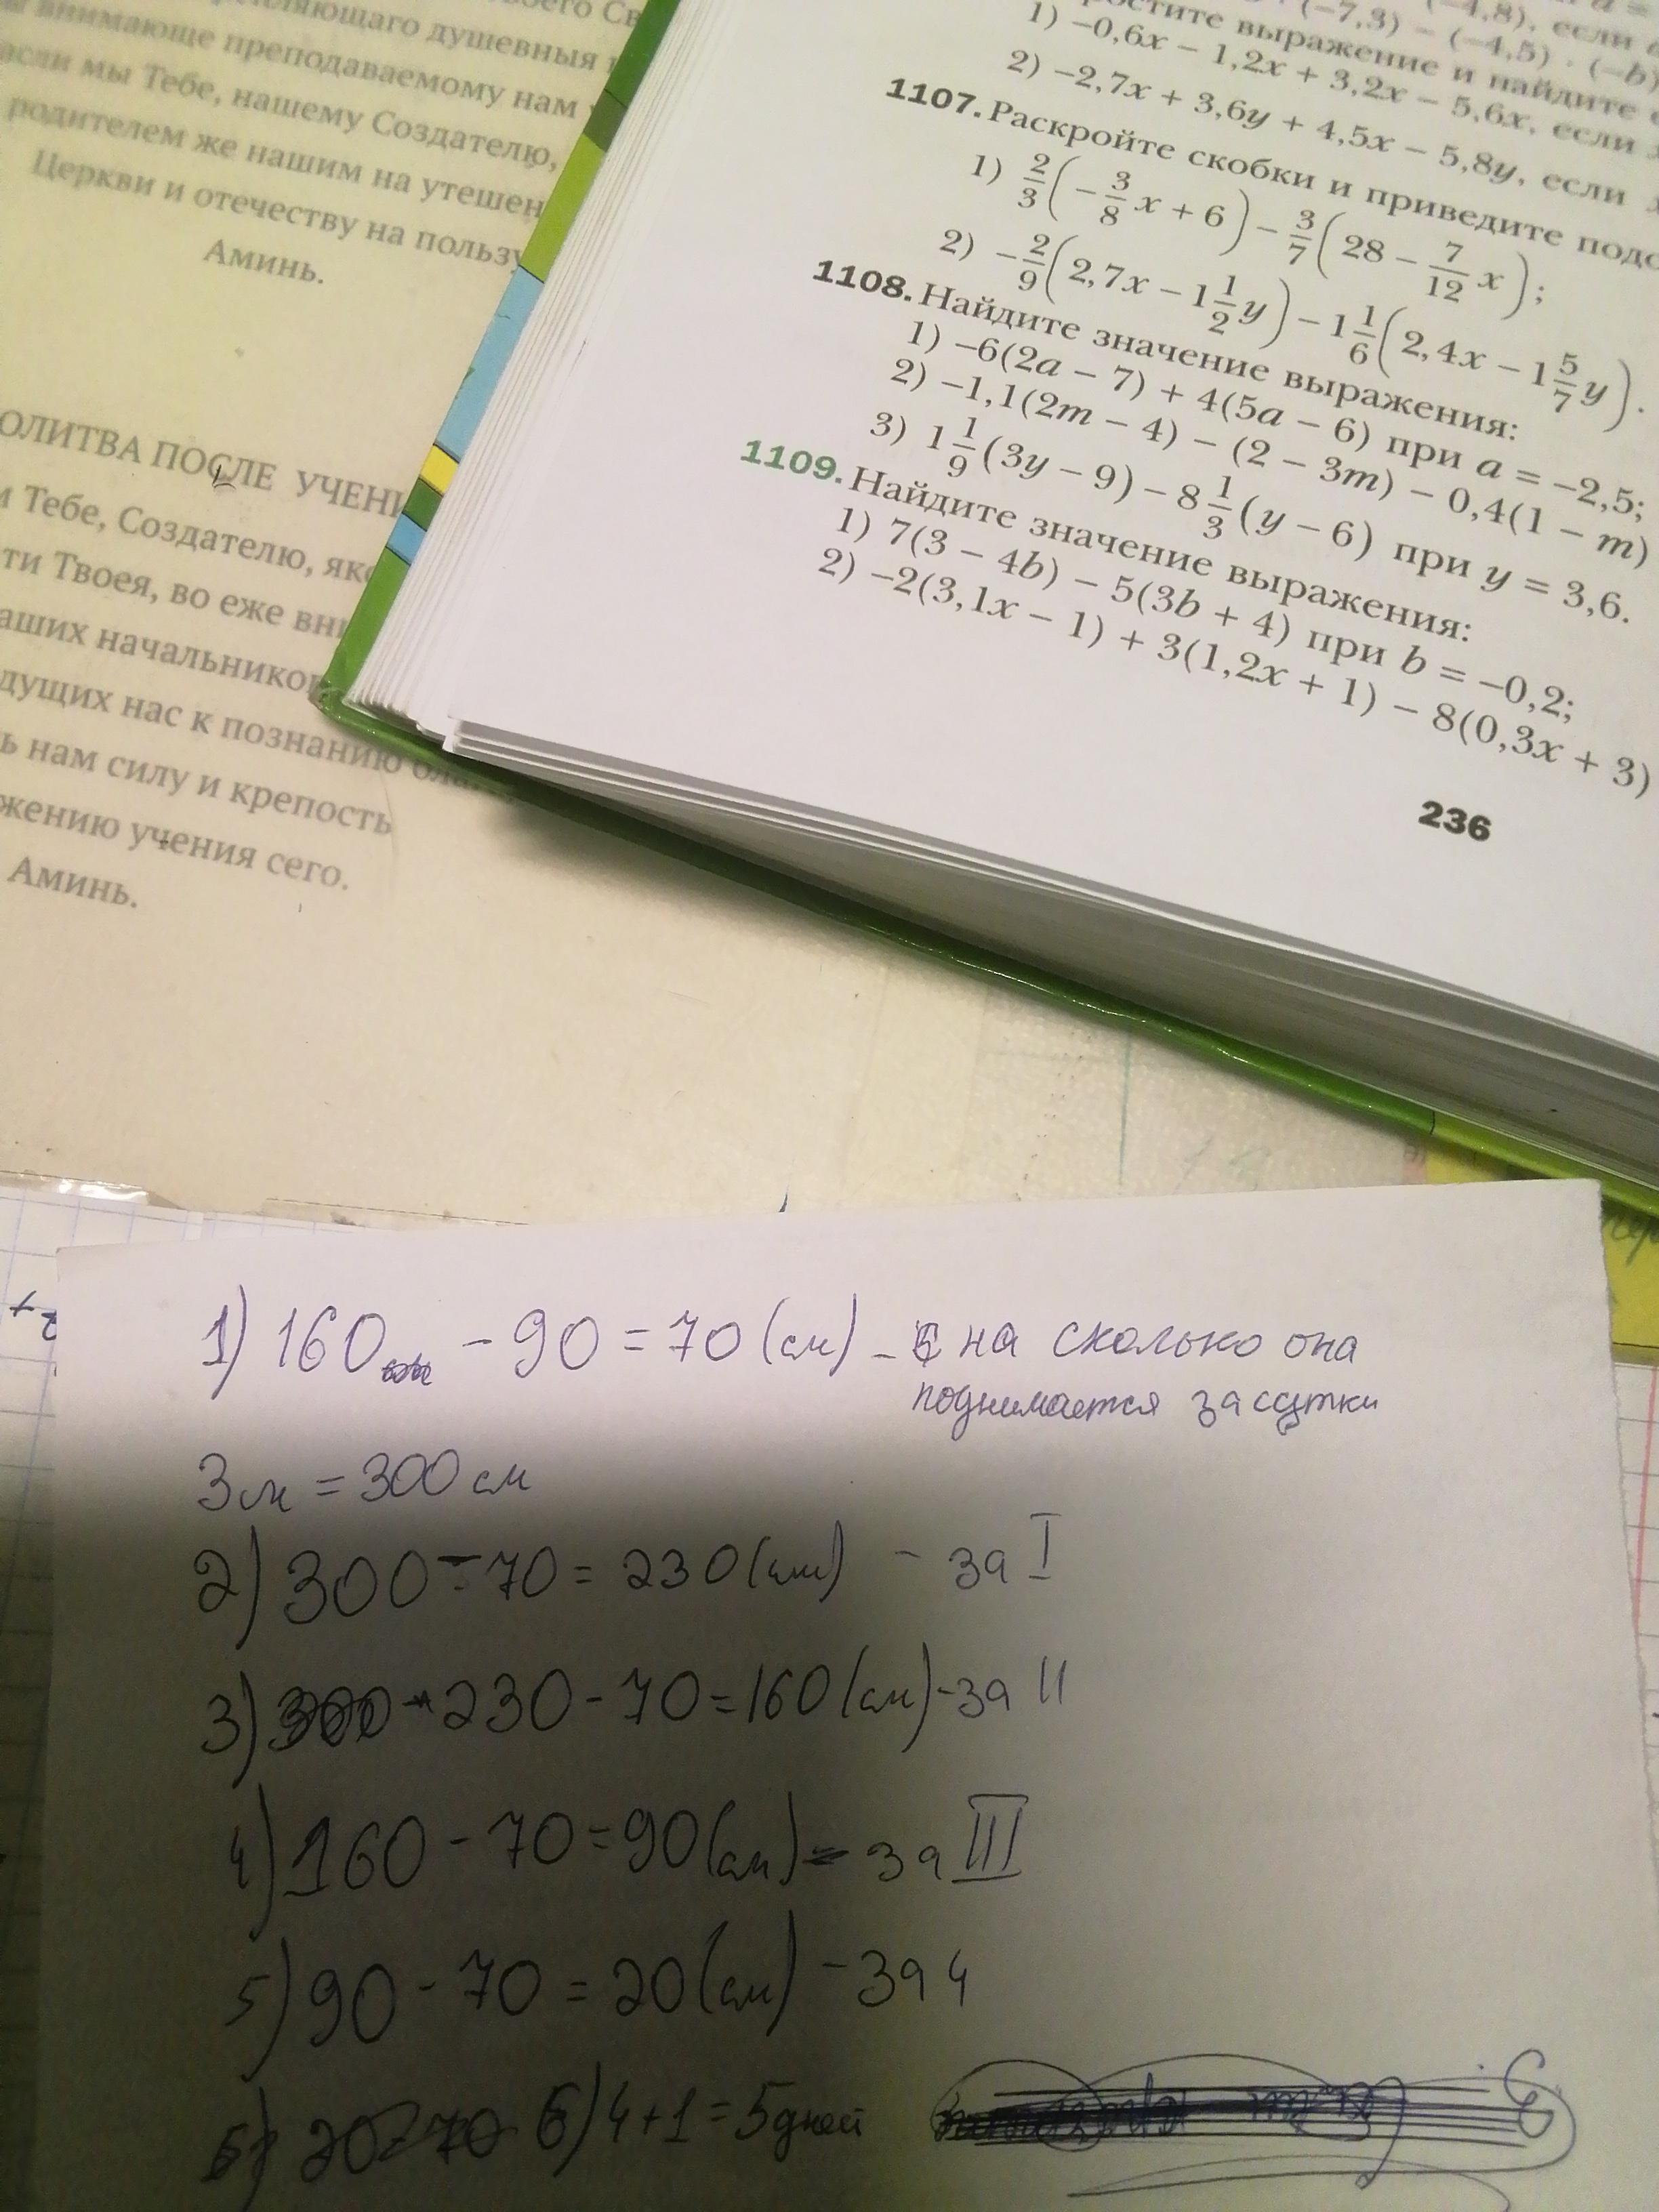 душевныя
внимающе преподаваемому нам
мы Тебе, нашему Создателю,
родителем же нашим на утешен
Церкви и отечеству на пользу
Аминь.
ОЛИТВА ПОСЛЕ УЧЕНИ
Тебе, Создателю, яко
ти Твоея, во еже вни
аших начальников
дущих нас к познанию
ь нам силу и крепость
жению учения сего.
Аминь.
(−7,3) − (−4,5) · (−b)
остите выражение и найдите
1) −0,6x − 1,2x + 3,2x − 5,6x, если
2) −2,7x + 3,6y + 4,5x − 5,8y, если
1107. Раскройте скобки и приведите подо
1) 2/3(−3/8 x + 6) − 3/7(28 − 7/12 x);
2) −2/9(2,7x − 1 1/2 y) − 1 1/6(2,4x − 1 5/7 y).
1108. Найдите значение выражения:
1) −6(2a − 7) + 4(5a − 6) при a = −2,5;
2) −1,1(2m − 4) − (2 − 3m) − 0,4(1 − m)
3) 1 1/9 (3y − 9) − 8 1/3 (y − 6) при y = 3,6.
1109. Найдите значение выражения:
1) 7(3 − 4b) − 5(3b + 4) при b = −0,2;
2) −2(3,1x − 1) + 3(1,2x + 1) − 8(0,3x + 3)
236
1) 160 - 90 = 70 (см) - на сколько она
поднимается за сутки
3 м = 300 см
2) 300 - 70 = 230 (см) - за I
3) 230 - 70 = 160 (см) - за II
4) 160 - 70 = 90 (см) - за III
5) 90 - 70 = 20 (см) - за 4
6) 4 + 1 = 5 дней